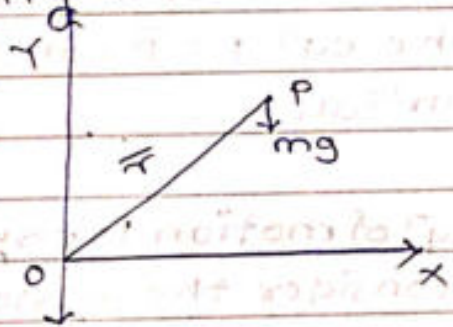 Y
P
mg
r̅
O
X